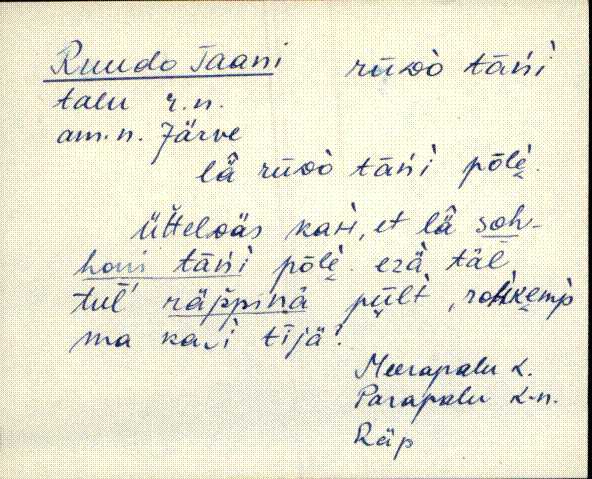 Ruudo Taani rūᴅò tāńi
talu r.n.
am.n. Järve
lä̂ rūᴅò tāńi pōlè̮.
üťteᴅäs kaʜ, et lä̂ soh-
hoɴi tāńi pōlè̮. ezä täl
tul' räp̆pinä pǖlt,
ma ka tījä!
Meerapalu k.
Parapalu k-n.
Räp